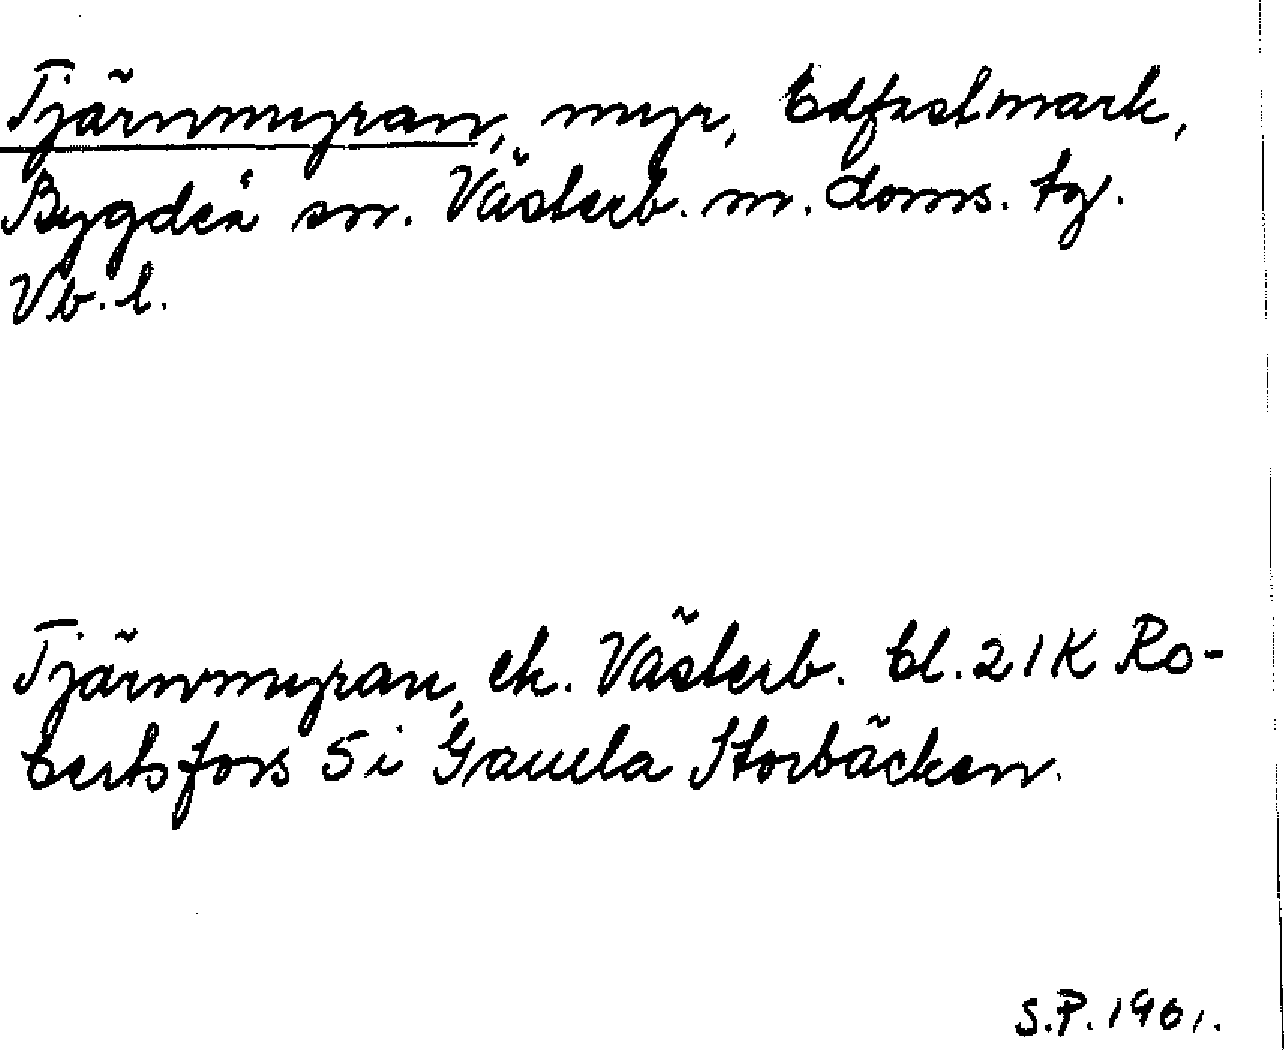 Tjärnmyran, myr, Edfastmark,
Bygdeå sn. Västerb. n. doms. tg.
Vb. l.
Tjärnmyran, ek. Västerb. bl. 21K Ro-
bertsfors 5 i Gamla Storbäcken.
S.P. 1961.